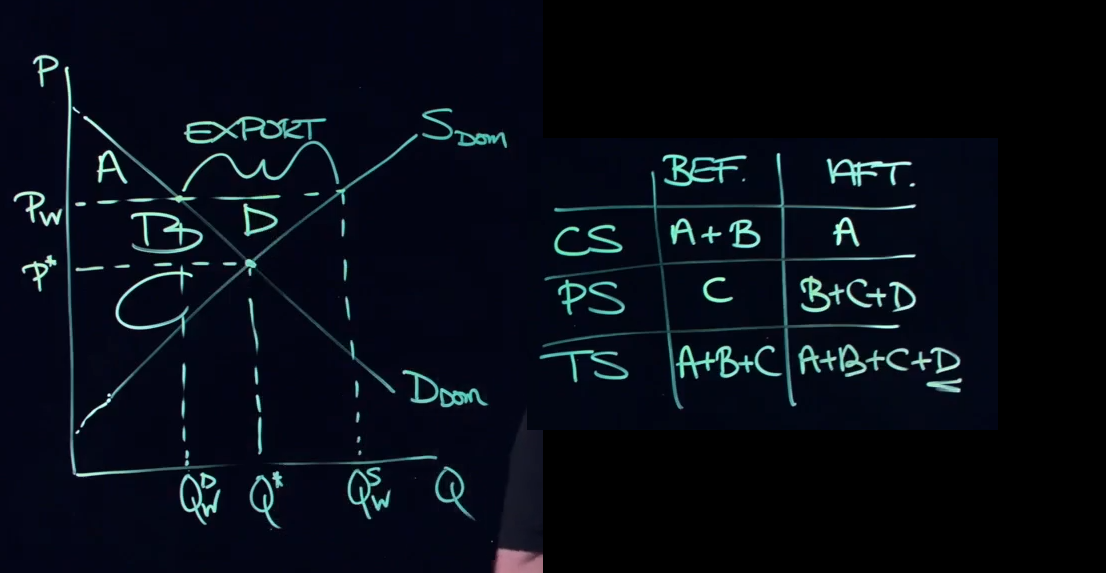 P
EXPORT
S_Dom
A
P_W
B D
P*
C
D_Dom
Q_W^D Q* Q_W^S Q
BEF. AFT.
CS A+B A
PS C B+C+D
TS A+B+C A+B+C+D